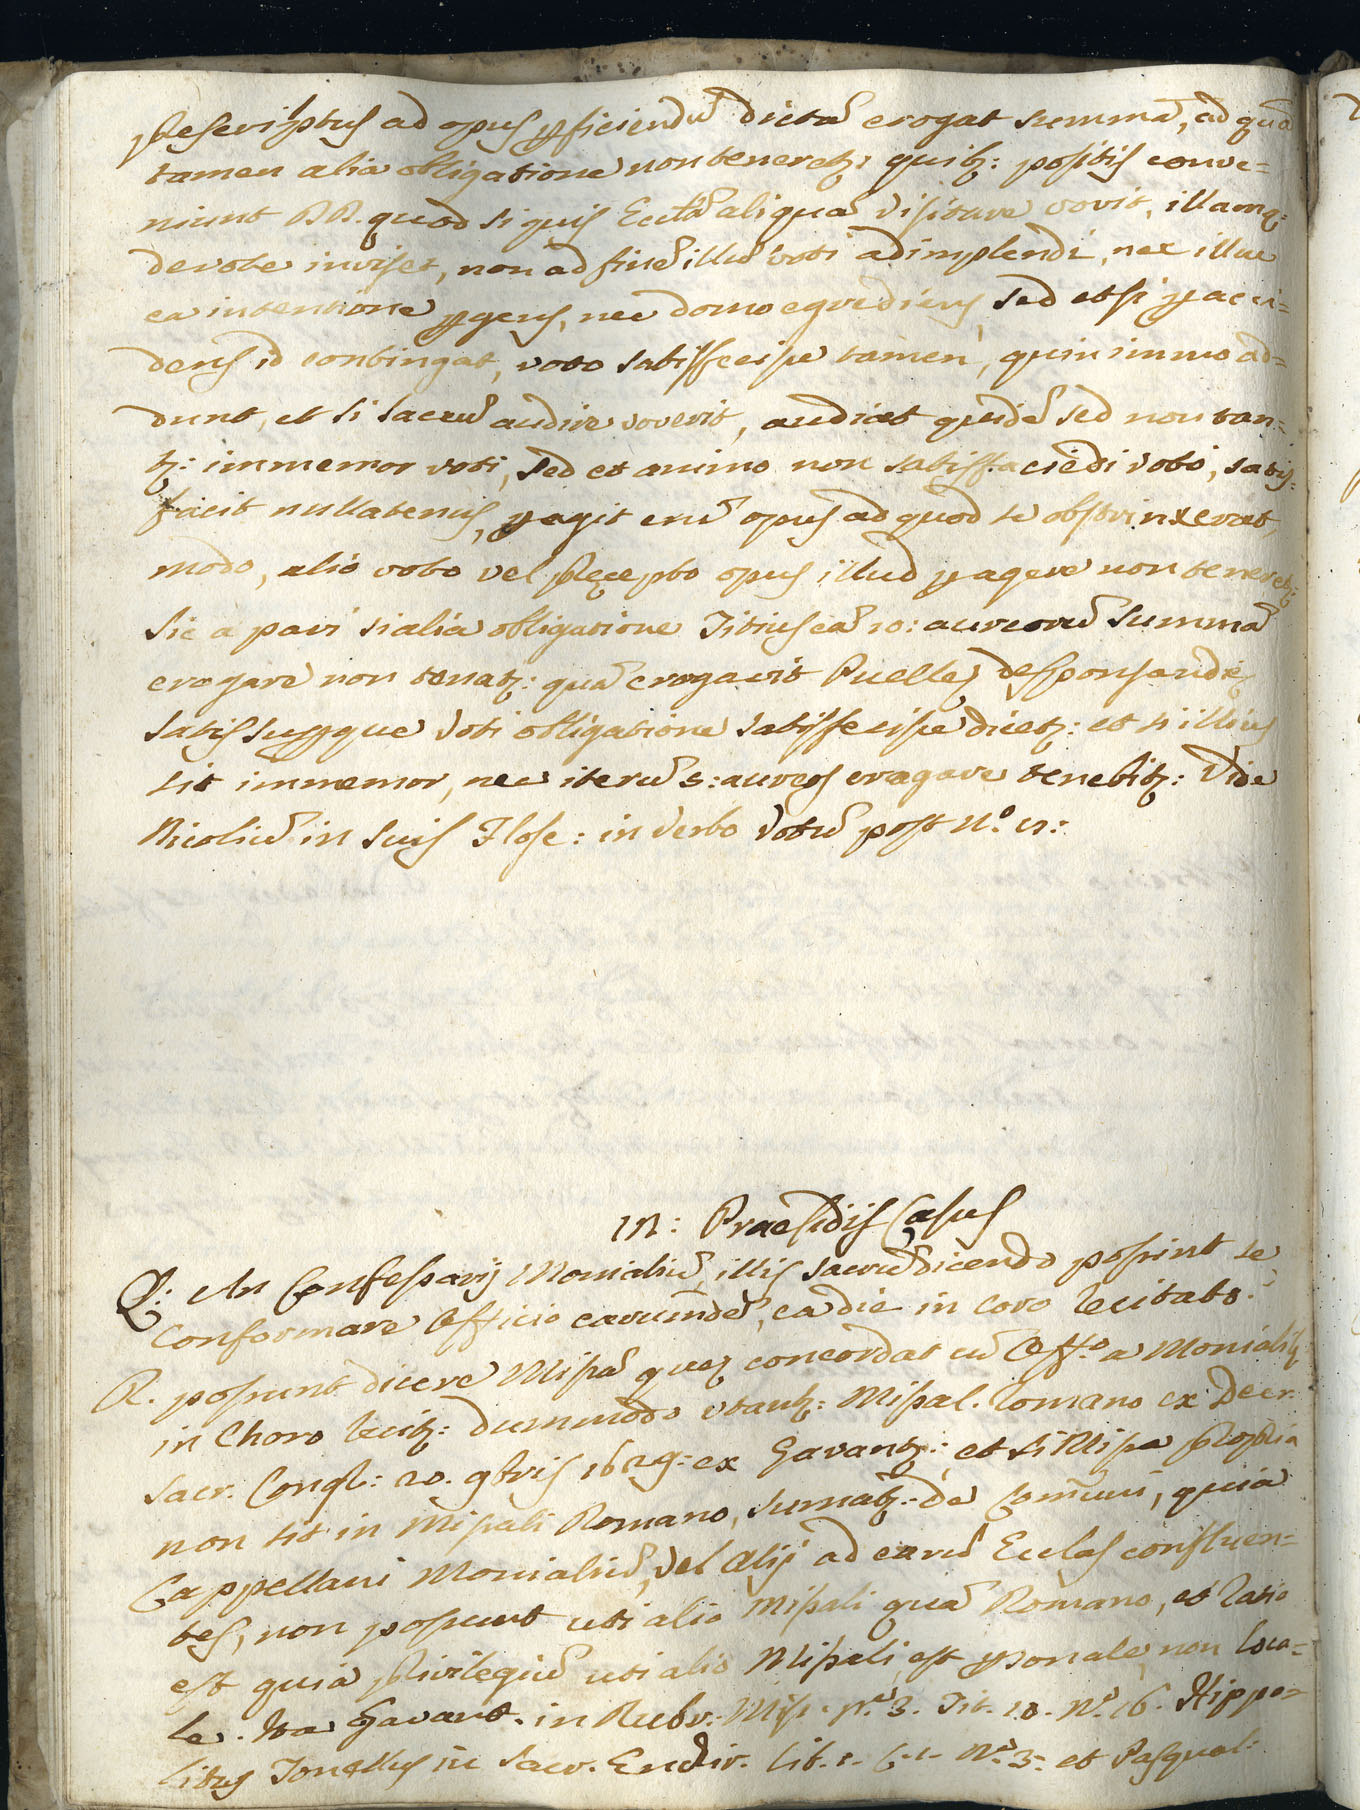 prescriptus ad opus pficiendũ dictã erogat summã, ad quã
tamen alia obligatione non teneretʒ, quitʒ: positis conve=
niunt DD. quod si quis Ecclã aliquã visitare vovit, illamq:
devote inviset, non ad finẽ illũ voti adimplendi, nec illuc
ea intentione pgens, nec domo egrediens, sed etsi p acci=
dens id contingat, voto satisfecisse tamen, quinimmo ad=
dunt, et si sacrũ audire voverit, audiat quidẽ sed non tan=
tʒ: immemor voti, sed et animo non satisfaciẽdi voto, satis=
facit nullatenus, pagit enĩ opus ad quod se obstrinxerat,
modo, alio voto vel precepto opus illud pagere non teneretʒ:
sic a pari si alia obligatione Titius eã 10: aureorũ summã
erogare non tenatʒ: quã erogavit Puelle, desponsande,
satis superque voti obligatione satisfecisse dicetʒ: et si illius
sit immemor, nec iterũ s: aureos erogare tenebitʒ: Vide
Nicoliũ in suis Flosc: in verbo Votũ post N.º 11:
In: Praesidis Casus
Q: An Confessarij Monialiũ, illis sacrũ dicendo possint se
conformare officio earumdẽ, ea die in coro recitato.
R. possunt dicere Missã que concordat cũ Off.º a Monialibʒ
in Choro recitʒ: dummodo utantʒ: Missal. Romano ex Decr.
sacr. Congr: 20. 9bris 1629: ex Gavantʒ: et si Missa propria
non sit in Missali Romano, sumatʒ: de Comũni, quia
Cappellani Monialiũ, vel alij ad earũ Ecclas confluen=
tes, non possunt uti alio Missali quã Romano, et ratio
est quia privilegiũ uti alio Missali, est psonale, non loca=
le. Ita Gavant. in Rubr. Miss. p.ª 3. Tit. 10. N.º 16. Hippo=
litus Tonellus in sacr. Enchir. lib. 1. c. 1. N.º 3. et Pasqual: